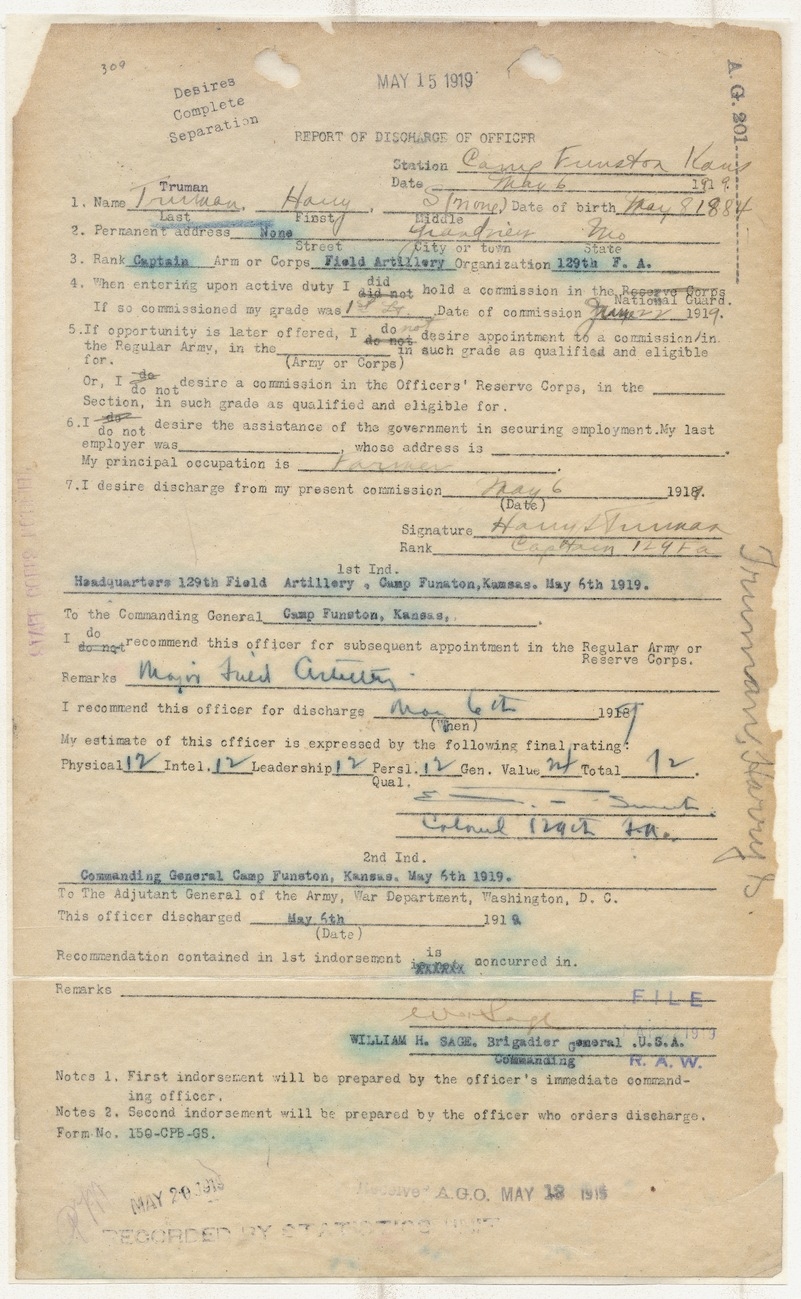 309
Desires
Complete
Separation
MAY 15 1919
A. G. 201
REPORT OF DISCHARGE OF OFFICER
Station Camp Funston Kans
Date May 6 1919.
Truman
1. Name Truman, Harry, S (none) Date of birth May 8 1884
Last First Middle
2. Permanent address None Grandview Mo
Street City or town State
3. Rank Captain Arm or Corps Field Artillery Organization 129th F. A.
4. When entering upon active duty I did did not hold a commission in the Reserve Corps
National Guard.
If so commissioned my grade was 1st Lt. Date of commission 22 1919.
5. If opportunity is later offered, I do not do not desire appointment to a commission/in
the Regular Army, in the in such grade as qualified and eligible
for. (Army or Corps)
Or, I do do not desire a commission in the Officers' Reserve Corps, in the
Section, in such grade as qualified and eligible for.
6. I do do not desire the assistance of the government in securing employment. My last
employer was , whose address is .
My principal occupation is Farmer .
7. I desire discharge from my present commission May 6 1919.
(Date)
Signature Harry S Truman
Rank Captain 129 FA
1st Ind.
Headquarters 129th Field Artillery , Camp Funston, Kansas. May 6th 1919.
To the Commanding General Camp Funston, Kansas, .
I do do not recommend this officer for subsequent appointment in the Regular Army or
Reserve Corps.
Remarks Major Field Artillery
I recommend this officer for discharge May 6th 1919
(When)
My estimate of this officer is expressed by the following final rating:
Physical 12 Intel. 12 Leadership 12 Persl. 12 Gen. Value 24 Total 72.
Qual.
Colonel 129th F.A.
2nd Ind.
Commanding General Camp Funston, Kansas. May 6th 1919.
To The Adjutant General of the Army, War Department, Washington, D. C.
This officer discharged May 6th 1919
(Date)
Recommendation contained in 1st indorsement is concurred in.
Remarks
FILE
WILLIAM H. SAGE. Brigadier General .U.S.A.
Commanding
R. A. W.
Notes 1. First indorsement will be prepared by the officer's immediate command-
ing officer.
Notes 2. Second indorsement will be prepared by the officer who orders discharge.
Form No. 150-CPB-GS.
MAY 20 1919
Received A.G.O. MAY 19 1919
RECORDED BY STATISTICS UNIT
Truman, Harry S.